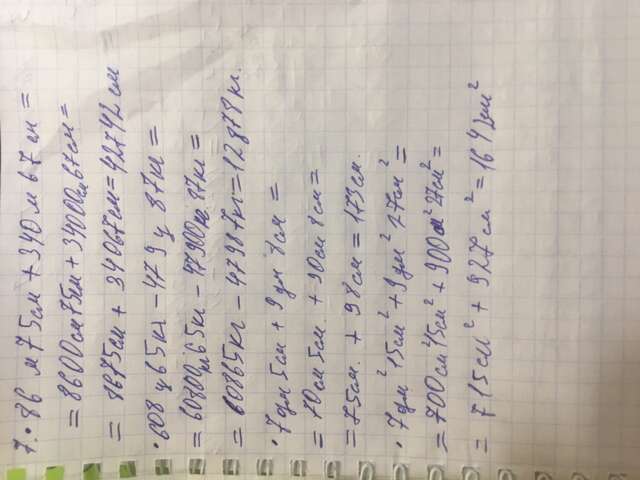 7. • 86 м 75 см + 340 м 67 см =
= 8600 см 75 см + 34000 см 67 см =
= 8675 см + 34067 см = 42742 см
• 608 ц 65 кг - 479 ц 87 кг =
= 60800 кг 65 кг - 47900 кг 87 кг =
= 60865 кг - 47987 кг = 12878 кг.
• 7 дм 5 см + 9 дм 8 см =
= 70 см 5 см. + 90 см 8 см =
= 75 см. + 98 см = 173 см.
• 7 дм² 15 см² + 9 дм² 27 см² =
= 700 см² 15 см² + 900 см² 27 см² =
= 715 см² + 927 см² = 1642 см²